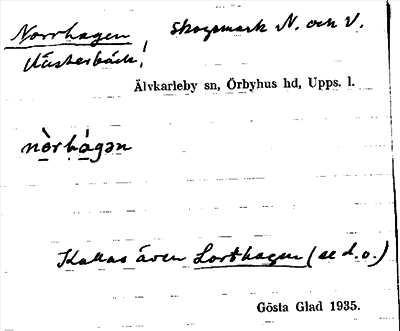 Norrhagen skogsmark N. och V.
Västerbäck!
Älvkarleby sn, Örbyhus hd, Upps. l.
nòrhágən
Kallas även Lorthagen (se d.o.)
Gösta Glad 1935.